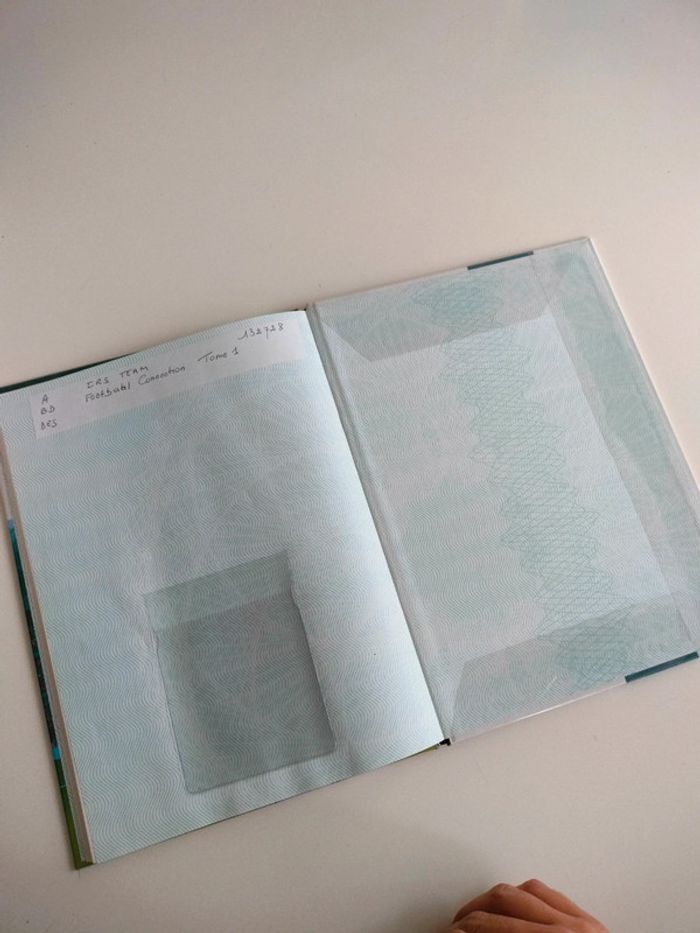 132728
A IRS TEAM
BD Football Connection Tome 1
DES